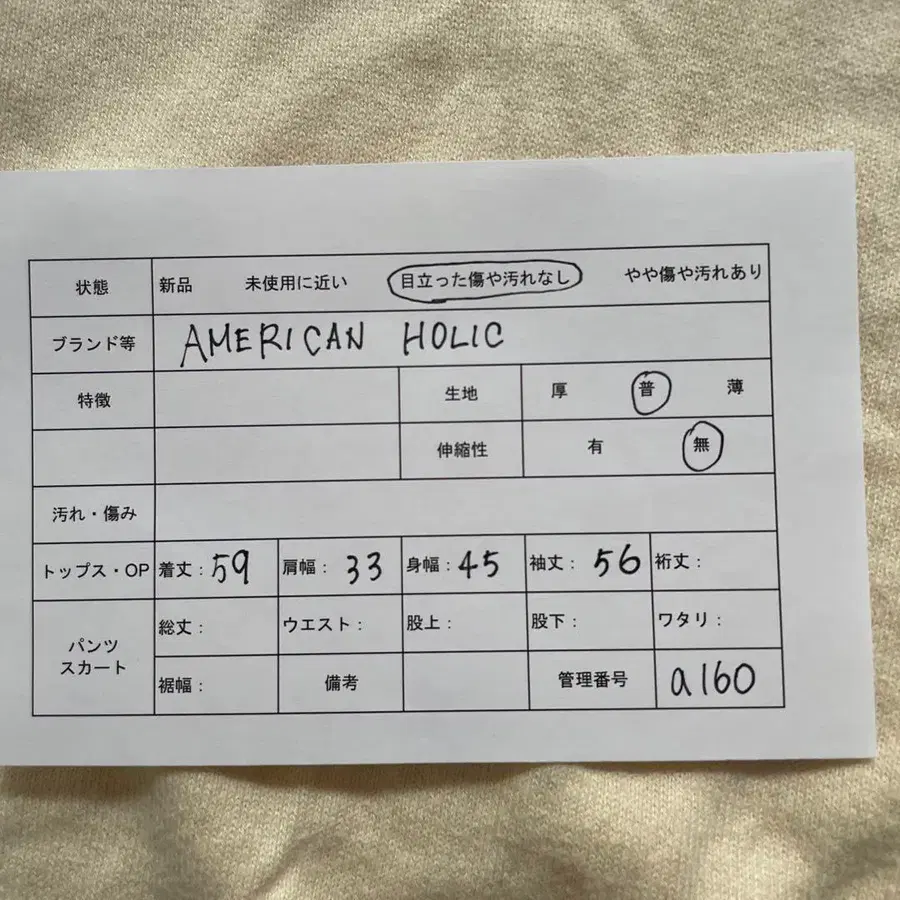 状態 新品 未使用に近い 目立った傷や汚れなし やや傷や汚れあり
ブランド等 AMERICAN HOLIC
特徴 生地 厚 普 薄
伸縮性 有 無
汚れ・傷み
トップス・OP 着丈：59 肩幅：33 身幅：45 袖丈：56 裄丈：
パンツ スカート 総丈： ウエスト： 股上： 股下： ワタリ：
裾幅： 備考 管理番号 a160